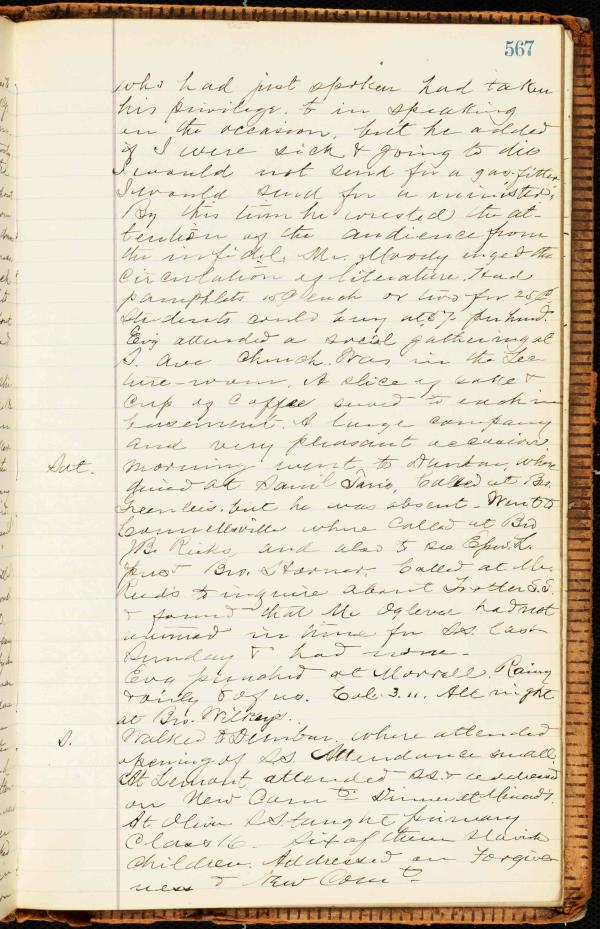 567
who had just spoken had taken
his privilege. to in speaking
on the occasion, but he added
if I were sick & going to die
I would not send for a gas-fitter
I would send for a minister,
By this time he wrested the at-
tention of the audience from
the infidel. Mr. Moody urged the
circulation of literature. Had
pamphlets 15¢ each or two for 25¢.
Students could buy at
Ev'g attended a social gathering at
S. Ave Church. Was in the Lec
ture-room. A slice of cake &
cup of coffee served to each in
basement. A large company
and very pleasant occasion
Sat. morning went to Dunbar, where
dined at Called at Bro.
but he was absent. Went to
Connellsville where called at Bro
J.B. Ricks, and also to see Epw. L.
Bro. Called at Mr.
to inquire about Trotter S.S.
& found that Mr Oglevee had not
arrived in time for S.S. last
Sunday & had none.
Evg preached at Morrell. Rainy
& only 8 of us. Col. 3.11. All night
at Bro.
S. Walked to Dunbar, where attended
opening of S.S. Attendance small.
At Lemont attended S.S. & addressed
on New Com'ts. Dinner at
At Oliver S.S. taught primary
Class 16. Six of them Slavish
children. Addressed on Forgive
ness & New Com'ts